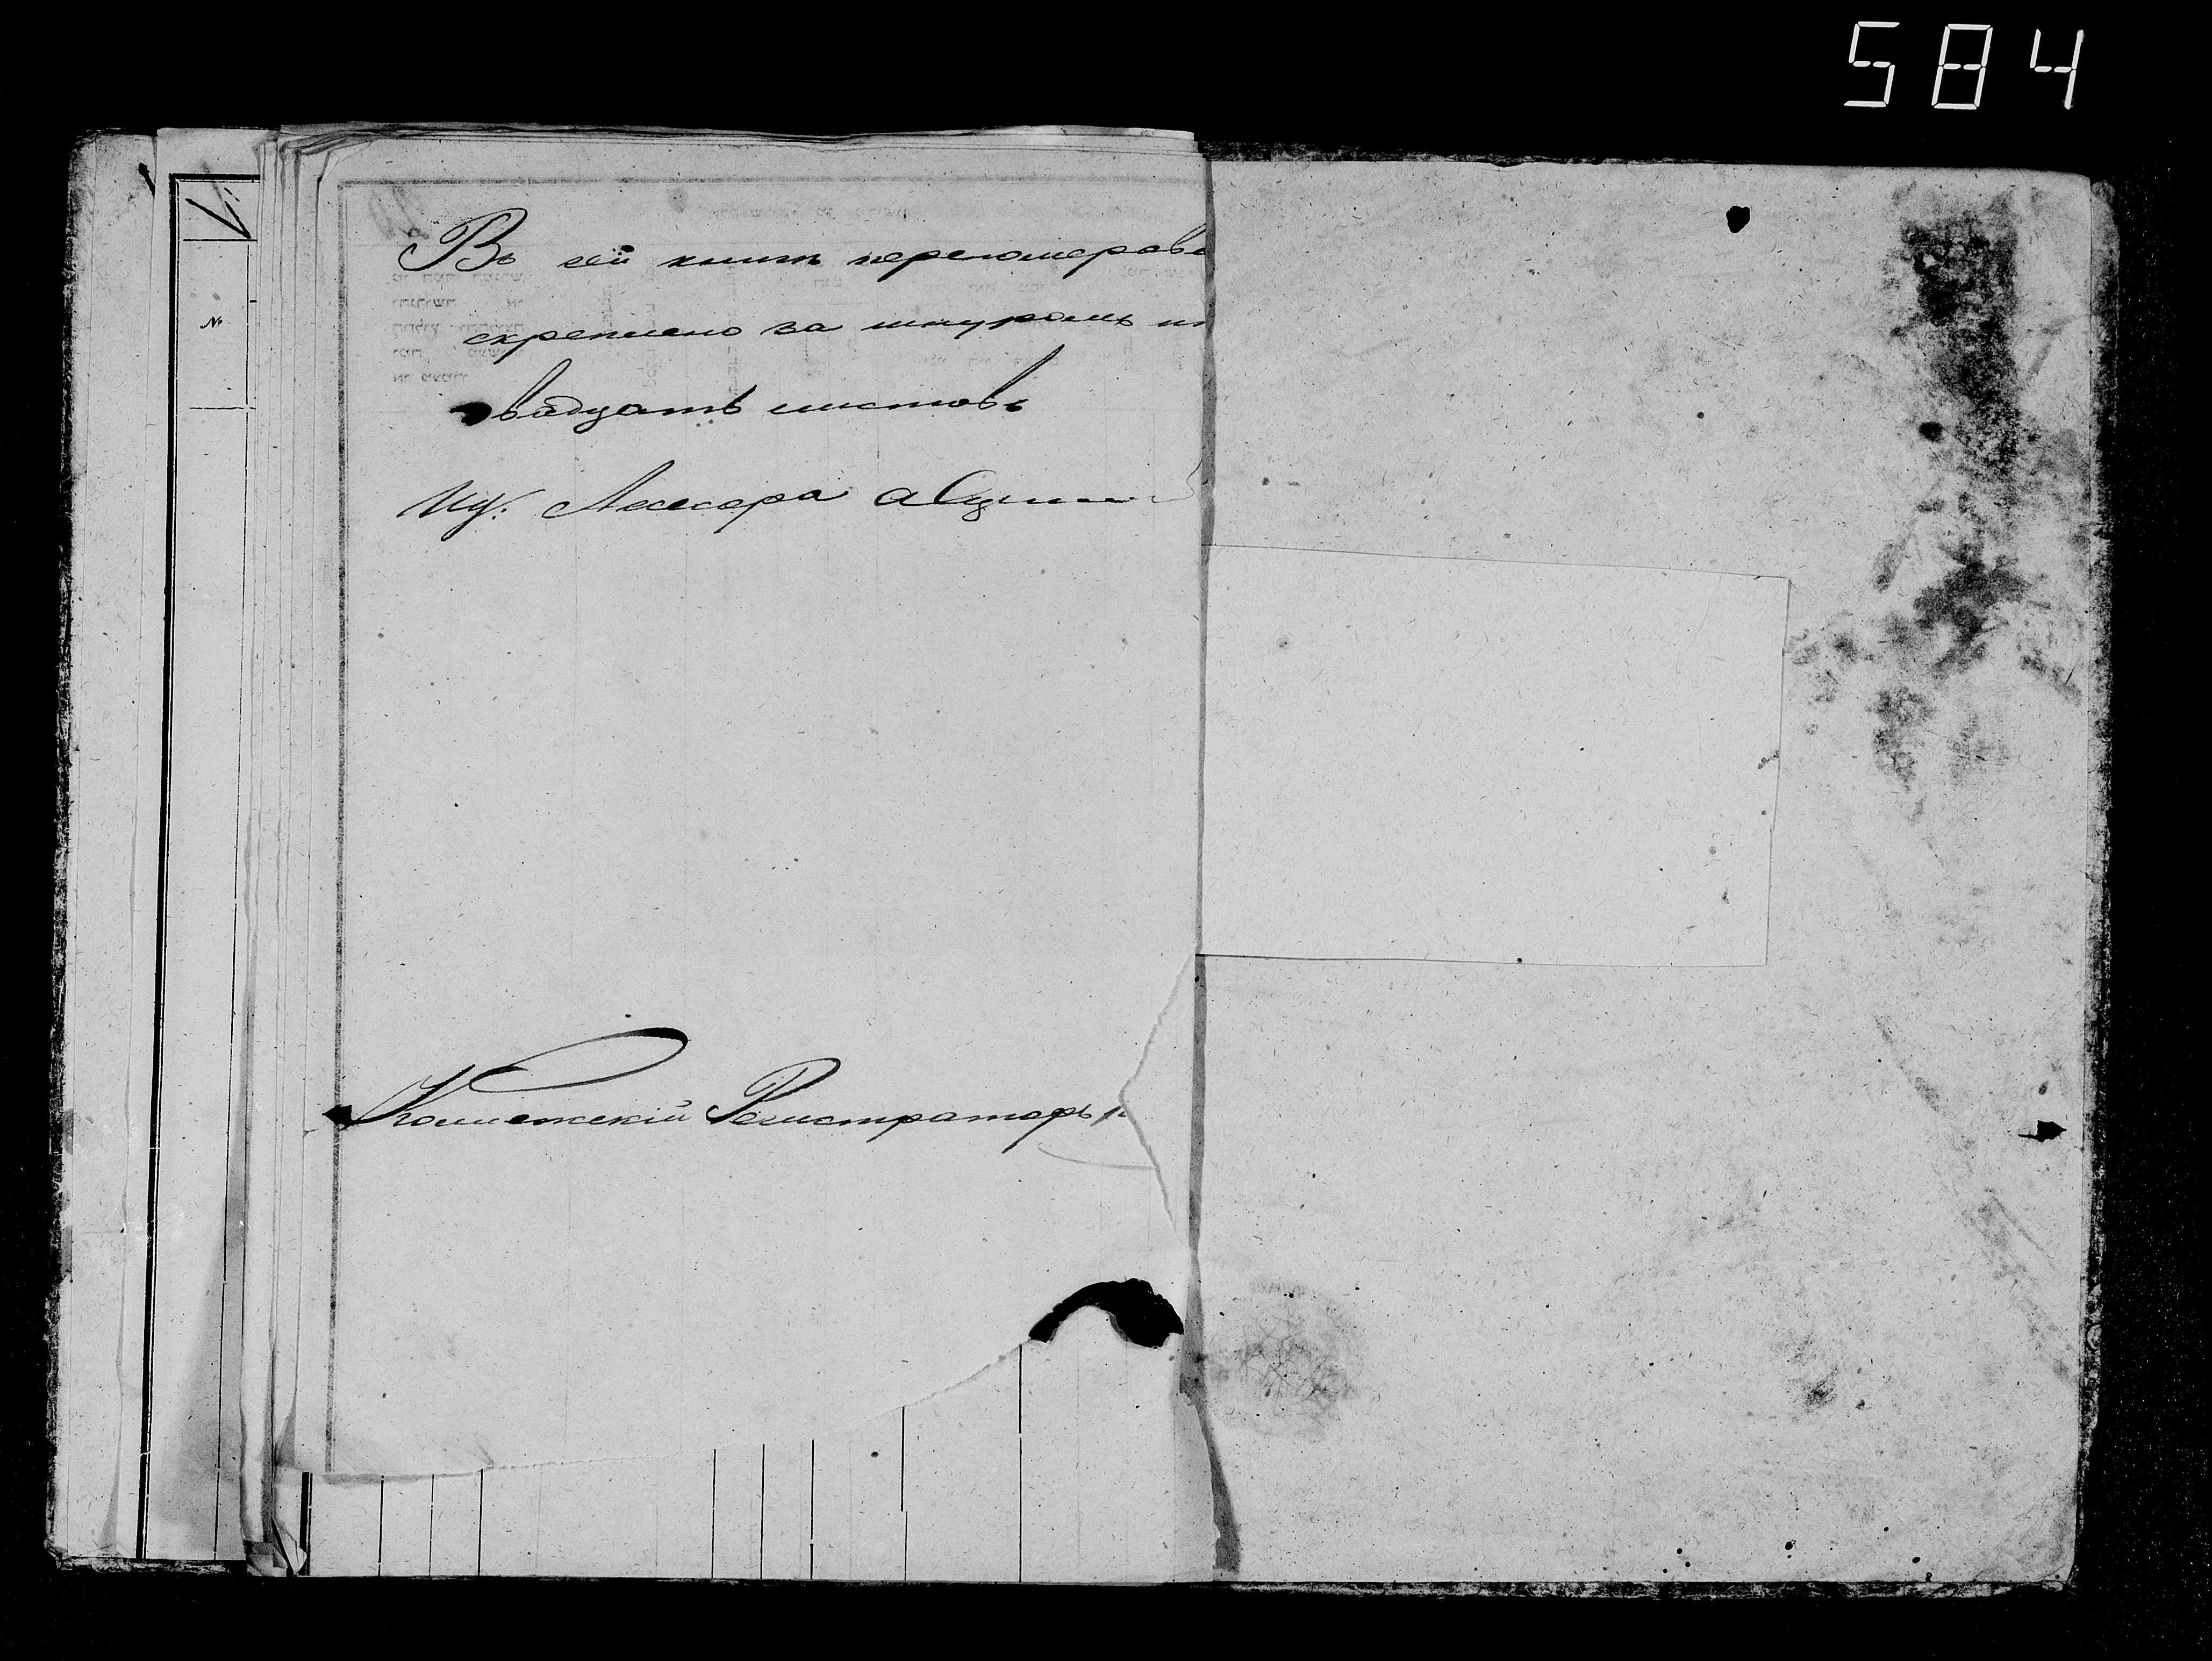 584
№
Въ сей книги перенумерова
скреплено за шнуромъ и
двадцать листовъ
Ассесора
Коллежскій Регистраторъ